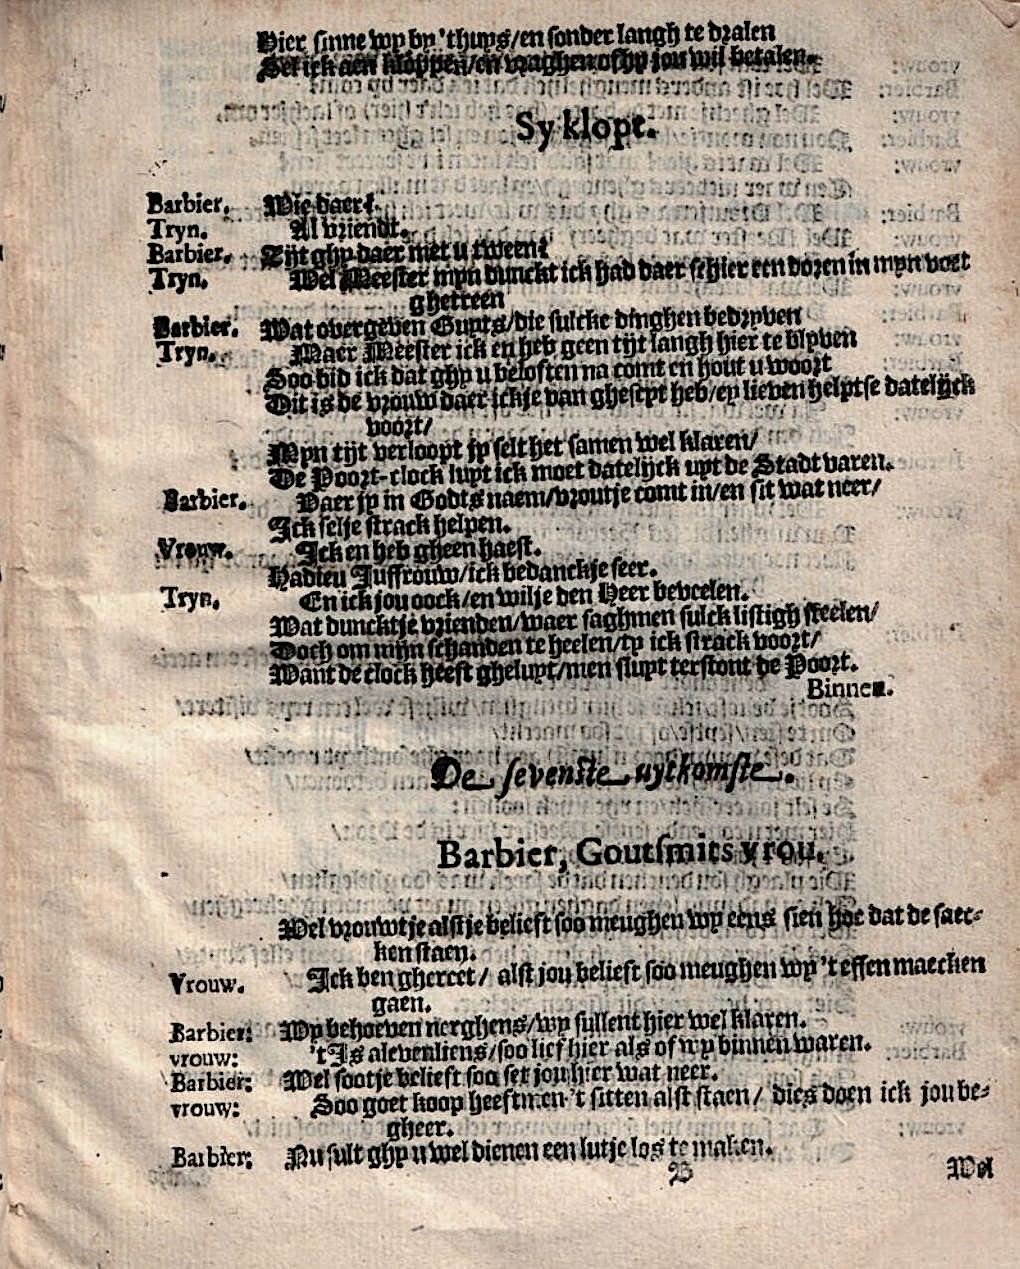 Hier sinne wy by 'thuys/en sonder langh te dralen
Sel ick aen kloppen/en vraghen of hy jou wil betalen.
Sy klopt.
Barbier. Wie daer?
Tryn. Al vriendt.
Barbier. Zijt ghy daer met u tween?
Tryn. Wel Meester myn dunckt ick had daer schier een doren in myn voet
ghetreen
Barbier. Wat overgeven Guyts/die sulcke dinghen bedryven
Tryn. Maer Meester ick en heb geen tijt langh hier te blyven
Soo bid ick dat ghy u beloften na comt en hout u woort
Dit is de vrouw daer ickje van gheseyt heb/ey lieven helptse datelijck
voort/
Myn tijt verloopt jy selt het samen wel klaren/
De Poort-clock luyt ick moet datelijck uyt de Stadt varen.
Barbier. Vaer jy in Godts naem/vroutje comt in/en sit wat neer/
Ick selje strack helpen.
Vrouw. Ick en heb gheen haest.
Hadieu Juffrouw/ick bedanckje seer.
Tryn. En ick jou oock/en wilje den Heer beveelen.
Wat duncktje vrienden/waer saghmen sulck listigh steelen/
Doch om mijn schanden te heelen/ty ick strack voort/
Want de clock heeft gheluyt/men sluyt terstont de Poort.
Binnen.
De sevenste uytkomste.
Barbier, Goutsmits vrou.
Wel vrouwtje alstje belieft soo meughen wy eens sien hoe dat de saec-
ken staen.
Vrouw. Ick ben ghereet/ alst jou belieft soo meughen wy 't effen maecken
gaen.
Barbier: Wy behoeven nerghens/wy sullent hier wel klaren.
vrouw: 't Is alevenliens/soo lief hier als of wy binnen waren.
Barbier: Wel sootje belieft soo set jou hier wat neer.
vrouw: Soo goet koop heeftmen 't sitten alst staen/ dies doen ick jou be-
gheer.
Barbier: Nu sult ghy u wel dienen een lutje los te maken.
B Wel